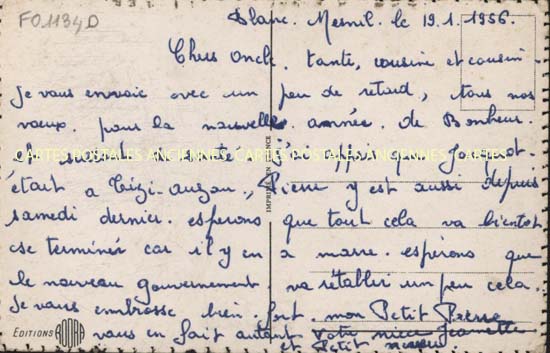 FO1134D
Blanc. Mesnil. le 19.1.1956.
Chers oncle. tante, cousine et cousin
je vous envoie avec un peu de retard, tous nos
vœux. pour la nouvelle année. de Bonheur.
et santé j'ai appris que Jacquot.
CARTES POSTALES ANCIENNES CARTES POSTALES ANCIENNES CARTES
était a Tizi-ouzou, Pierre y est aussi depuis
samedi dernier. esperons que tout cela va bientot
se terminer car il y en a marre. espérons que
le nouveau gouvernement va rétablir un peu cela.
Je vous embrasse bien fort. mon Petit Pierre
vous en fait autant votre niece Jeanette
et Petit neveu
EDITIONS
IMPRIMÉ EN FRANCE